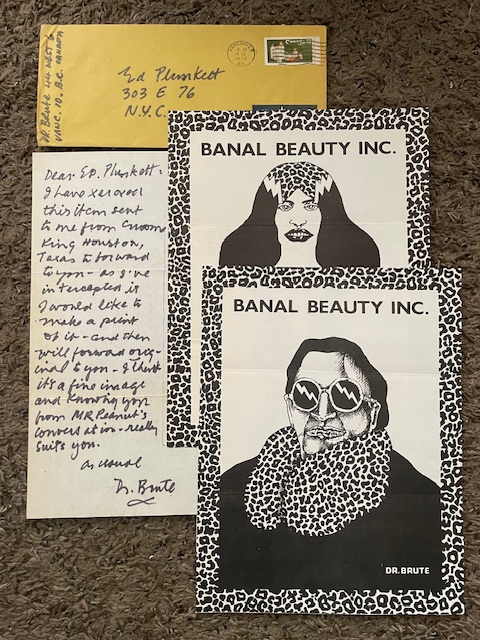 DR. BRUTE 44 WEST 6
VANC. 10. B.C. CANADA
VANCOUVER
Canada
Ed Plunkett
303 E 76
N.Y.C.
Dear. ED. Plunkett.
I have xeroxed
this item sent
to me from
King Houston,
Texas to forward
to you - as I've
intercepted it
I would like to
make a print
of it - and then
will forward orig-
inal to you - I think
it's a fine image
and knowing you
from MR Peanut's
conversation - really
suits you.
as usual
Dr. Brute
BANAL BEAUTY INC.
BANAL BEAUTY INC.
DR. BRUTE